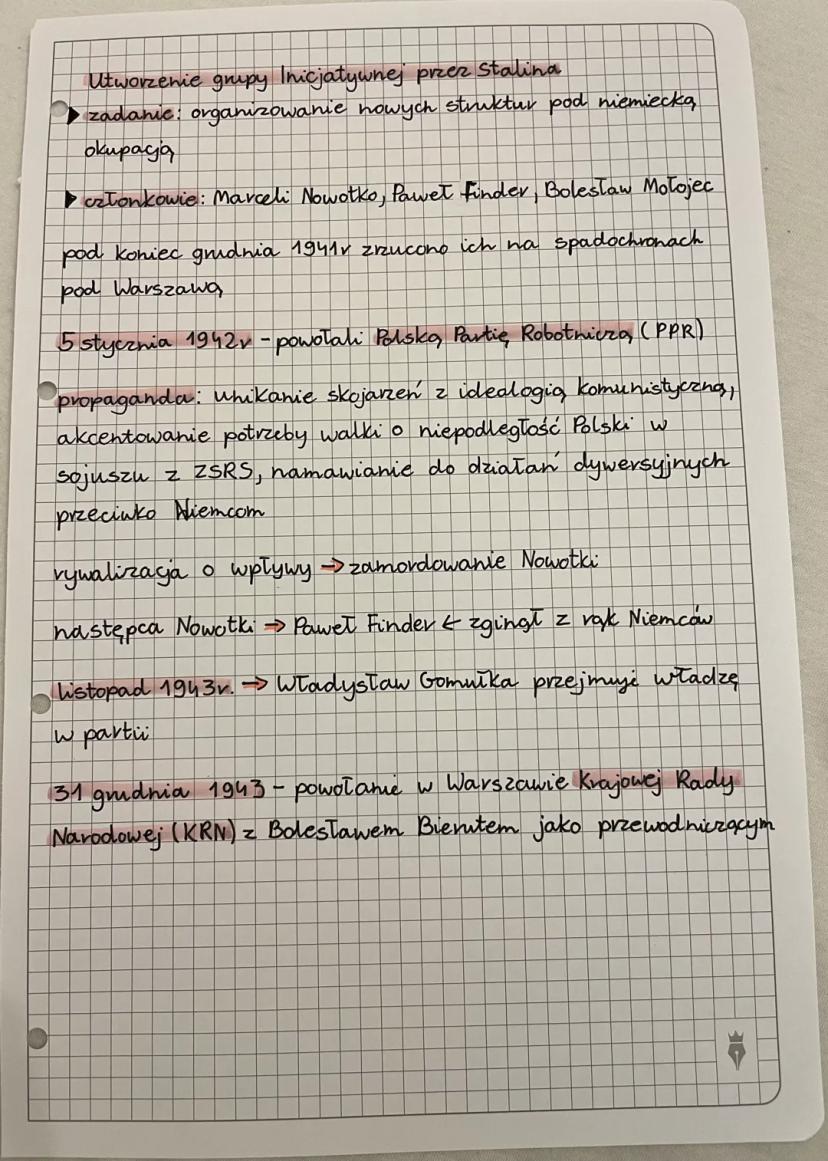 Utworzenie grupy Inicjatywnej przez Stalina
▶ zadanie: organizowanie nowych struktur pod niemiecką
okupacją
▶ członkowie: Marceli Nowotko, Paweł Finder, Bolesław Mołojec
pod koniec grudnia 1941r zrzucono ich na spadochronach
pod Warszawą
5 stycznia 1942r - powołali Polską Partię Robotniczą (PPR)
propaganda: unikanie skojarzeń z ideologią komunistyczną,
akcentowanie potrzeby walki o niepodległość Polski w
sojuszu z ZSRS, namawianie do działań dywersyjnych
przeciwko Niemcom
rywalizacja o wpływy → zamordowanie Nowotki
następca Nowotki → Paweł Finder ← zginął z rąk Niemców
listopad 1943r. → Władysław Gomułka przejmuje władzę
w partii
31 grudnia 1943 - powołanie w Warszawie Krajowej Rady
Narodowej (KRN) z Bolesławem Bierutem jako przewodniczącym